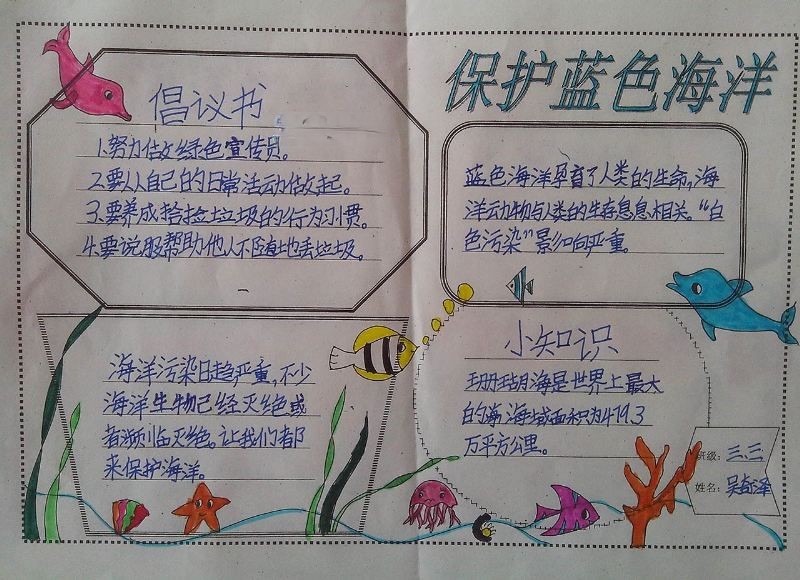 保护蓝色海洋
倡议书
1.努力做绿色宣传员。
2.要从自己的日常活动做起。
3.要养成捡垃圾的行为习惯。
4.要说服帮助他人不随地丢垃圾。
蓝色海洋孕育了人类的生命，海
洋动物与人类的生存息息相关。“白
色污染”影响向严重。
海洋污染日趋严重，不少
海洋生物已经灭绝或
者濒临灭绝。让我们都
来保护海洋。
小知识
珊瑚海是世界上最大
的海，海域面积为479.3
万平方公里。
班级：三.三
姓名：吴奇泽